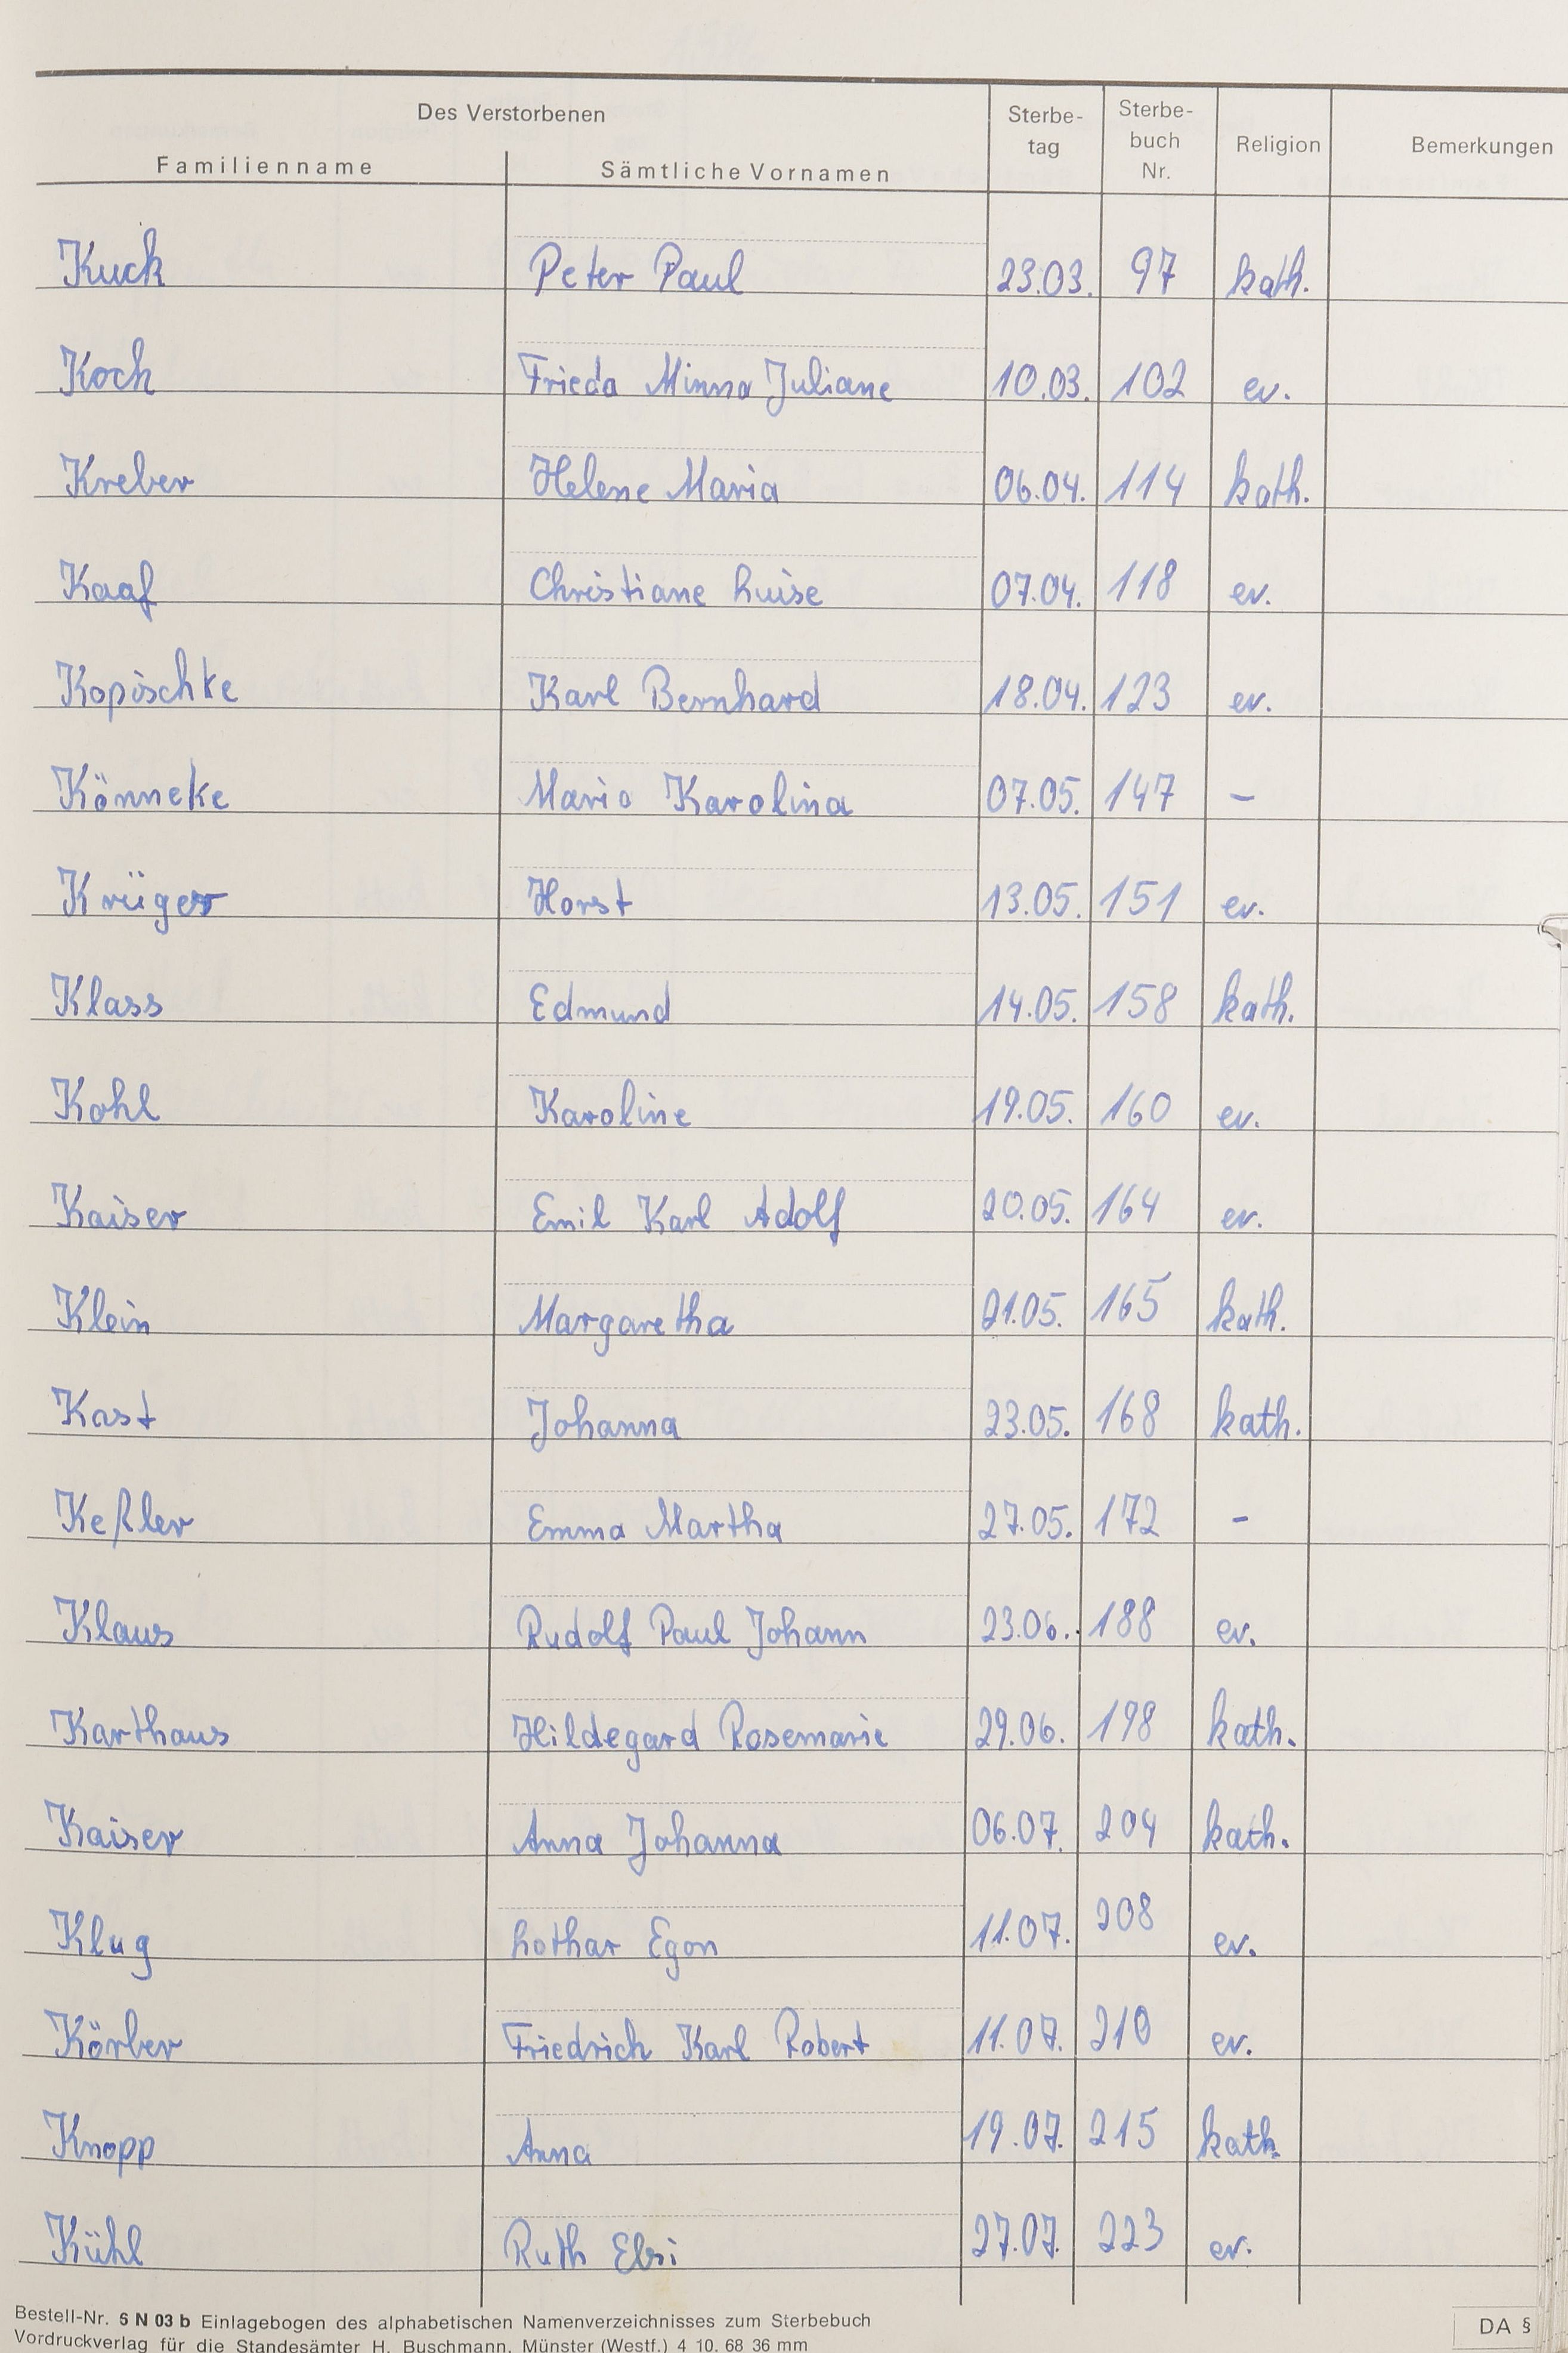 Des Verstorbenen
Familienname Sämtliche Vornamen Sterbe-tag Sterbe-buch Nr. Religion Bemerkungen
Kuck Peter Paul 23.03. 97 kath.
Koch Frieda Minna Juliane 10.03. 102 ev.
Kreber Helene Maria 06.04. 114 kath.
Kaaf Christiane Luise 07.04. 118 ev.
Kopischke Karl Bernhard 18.04. 123 ev.
Könneke Maria Karolina 07.05. 147 –
Krüger Horst 13.05. 151 ev.
Klass Edmund 14.05. 158 kath.
Kohl Karoline 19.05. 160 ev.
Kaiser Emil Karl Adolf 20.05. 164 ev.
Klein Margaretha 21.05. 165 kath.
Kast Johanna 23.05. 168 kath.
Keßler Emma Martha 27.05. 172 -
Klaus Rudolf Paul Johann 23.06. 188 ev.
Karthaus Hildegard Rosemarie 29.06. 198 kath.
Kaiser Anna Johanna 06.07. 204 kath.
Klug Lothar Egon 11.07. 208 ev.
Körber Friedrich Karl Robert 11.07. 210 ev.
Knopp Anna 19.07. 215 kath.
Kühl Ruth Elsi 27.07. 223 ev.
Bestell-Nr. 6 N 03 b Einlagebogen des alphabetischen Namenverzeichnisses zum Sterbebuch
Vordruckverlag für die Standesämter H. Buschmann, Münster (Westf.) 4 10. 68 36 mm
DA §